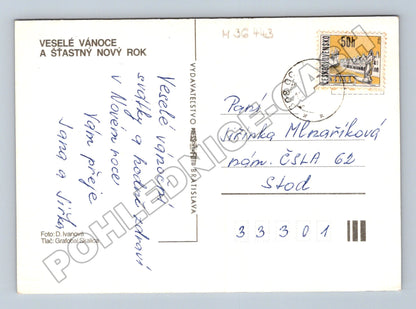 VESELÉ VÁNOCE
A ŠŤASTNÝ NOVÝ ROK
M 36 443
Veselé vánoční
svátky a hodně zdraví
v Novém roce
Vám přeje
Jana a Jirka
Foto: D. Ivanová
Tlač: Grafobal Skalica
VYDAVATEĽSTVO
BRATISLAVA
50h
ČESKOSLOVENSKO
Paní
Mlnaříková
nám. ČSLA 62
Stod
3 3 3 0 1
POHLEDNICE-CZ